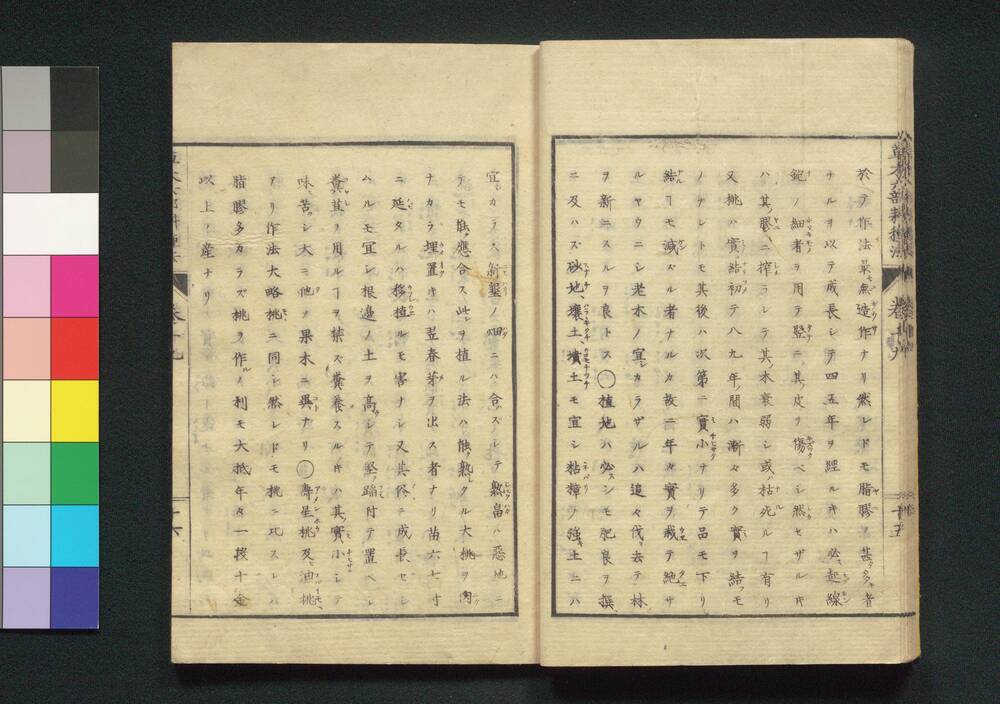 草木六部耕種法
卷十九
十五
於テ作法最モ無造作ナリ然レドモ脂膠ヲ甚ダ多キ者
ナルヲ以テ成長シテ四五年ヲ經ルキハ必ズ起線
鉋ノ細者ヲ用テ竪ニ其皮ヲ傷ベシ然セザルキ
ハ其膠ニ搾ラレテ其木衰弱シ或ハ枯死ルヿ有リ
又桃ハ實ヲ結初テ八九年ノ間ハ漸々多ク實ヲ結モ
ノナレトモ其後ハ次第ニ實小サナリテ品モ下リ
結ヿモ減ズル者ナルカ故ニ年々實ヲ栽テ絶サ
ルヤウニシ老木ノ宜シカラザルハ追々伐去テ林
ヲ新ニスルヲ良トス○植地ハ必ズシモ肥良ヲ撰
ニ及ハズ砂地壤土墳土モ宜シ粘埴ノ強土ニハ
宜シカラス新墾ノ畑ニハ合ズシテ熟畠ハ惡地ニ
テモ能ク應合ス此ヲ植ル法ハ能ク熟シタル大桃ヲ肉
ナカラ埋置キハ翌春芽ヲ出ス者ナリ苗六七寸
ニ延タルハ移植ルモ害ナシ又其儘ニ成長セシ
ムルモ宜シ根邊ノ土ヲ高シテ堅ク蹈付テ置ヘシ
糞苴ヲ用ルヿヲ禁ズ糞養スルキハ其實小シテ
味苦シ大ニ他ノ果木ニ異ナリ○壽星桃及ビ油桃
アリ作法大略桃ニ同シ然レドモ桃ニ比スレハ
脂膠多カラズ桃ヲ作ルノ利モ大抵年々一段十金
以上ノ産ナリ